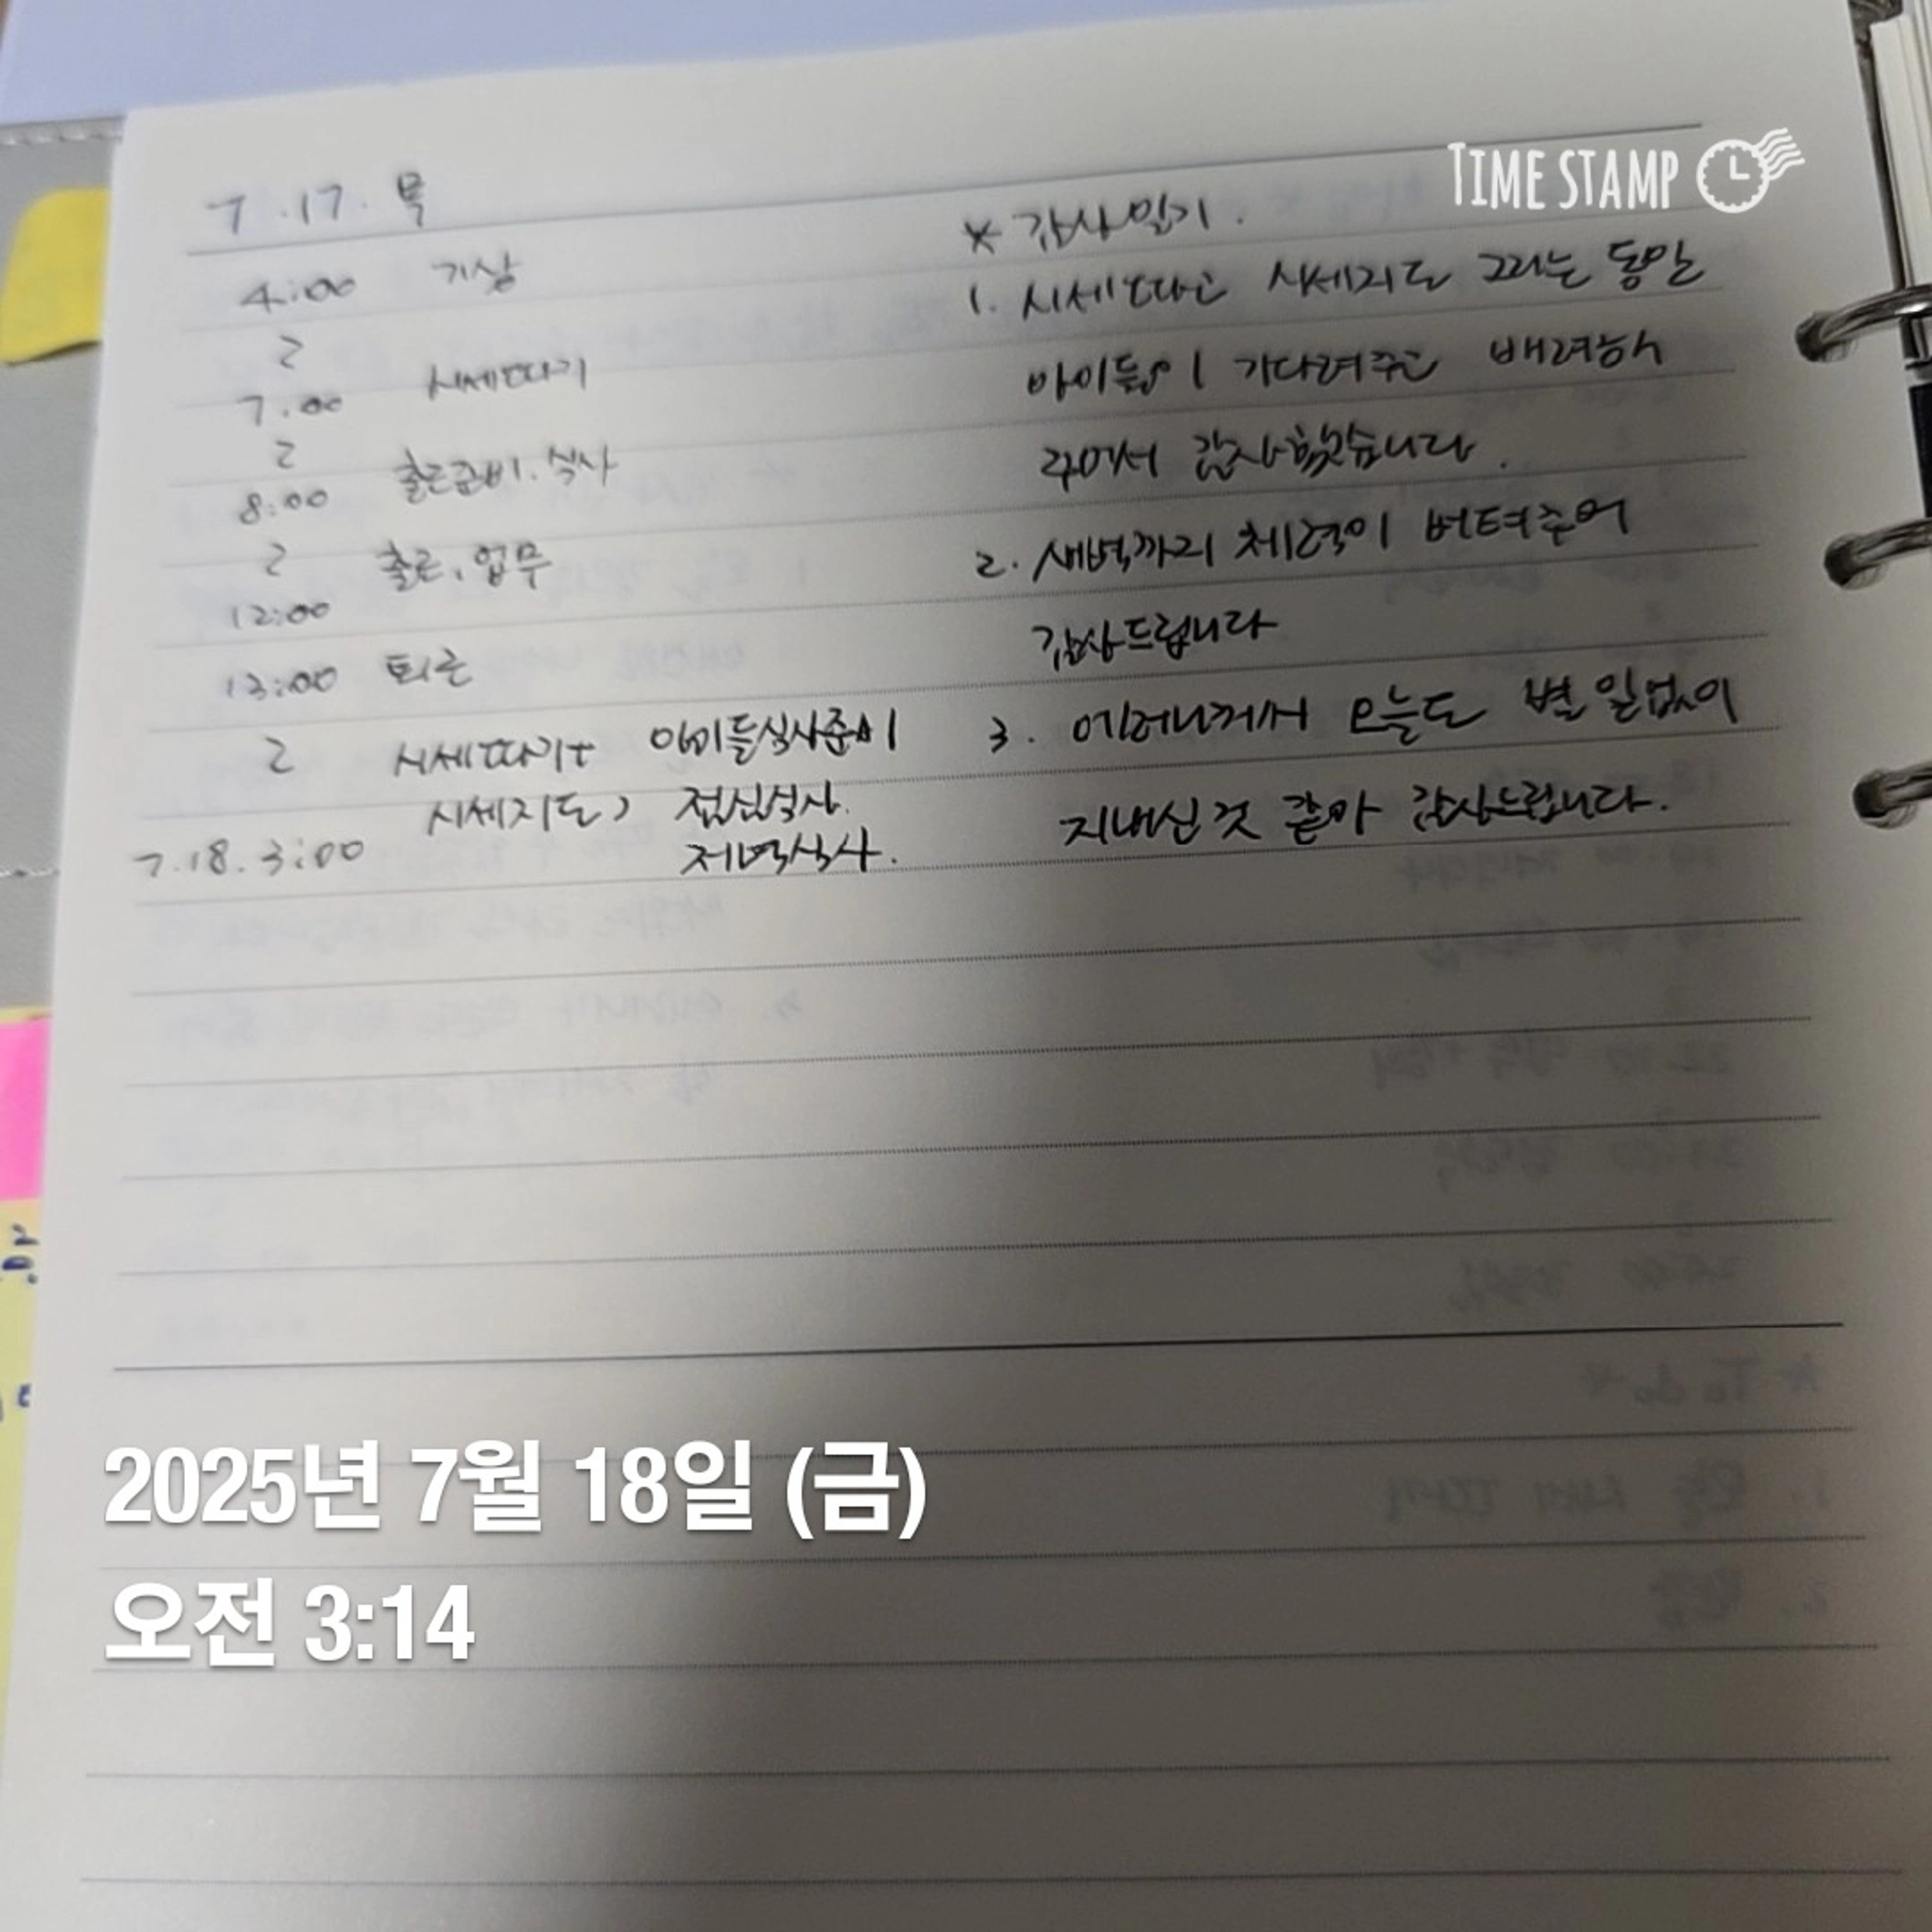 TIME STAMP
7.17. 목
4:00 기상
2
7:00 시세따기
2
8:00 출근준비. 식사
2
12:00 출근, 업무
13:00 퇴근
2 시세따기+ 아이들식사준비
시세지도) 점심식사.
7.18. 3:00 저녁식사.
* 감사일기.
1. 시세따고 시세지도 그리는 동안
아이들이 기다려주고 배려해
주어서 감사했습니다.
2. 새벽까지 체력이 버텨주어
감사드립니다
3. 어머니께서 오늘도 별 일없이
지내신 것 같아 감사드립니다.
2025년 7월 18일 (금)
오전 3:14